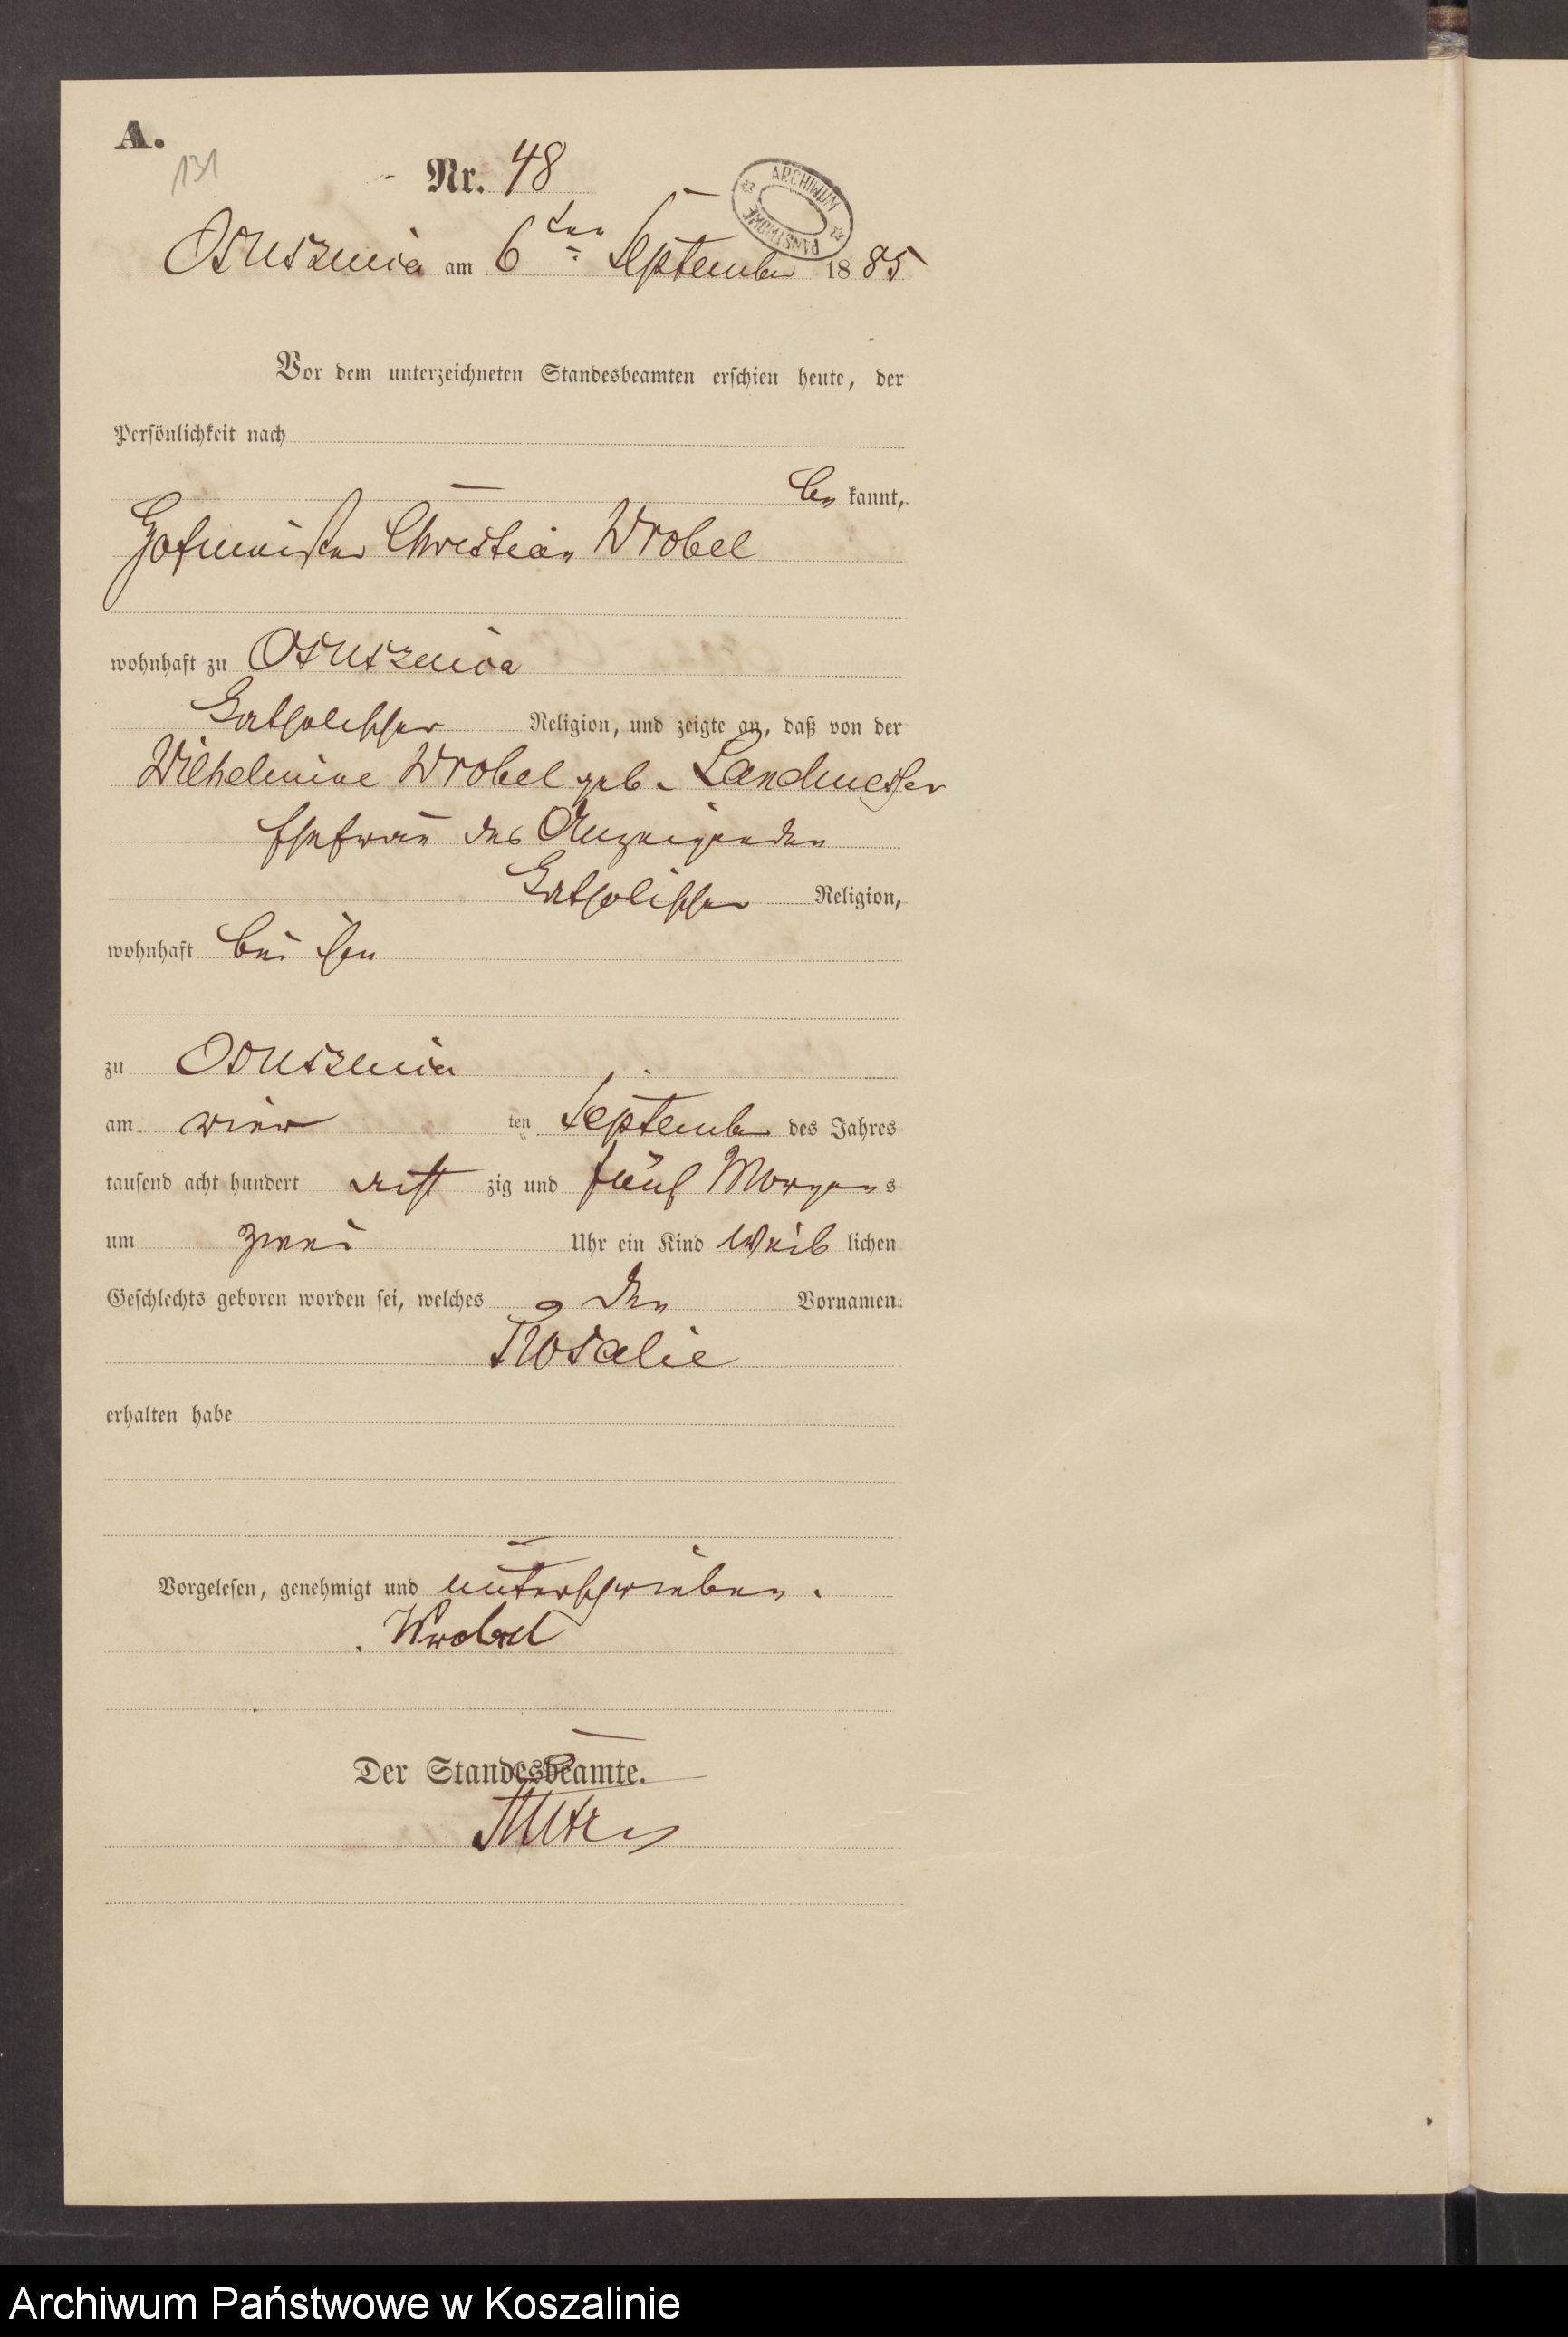 A.
131
Nr. 48
ARCHIWUM PAŃSTWOWE
Ossuszniça am 6ten September 1885
Vor dem unterzeichneten Standesbeamten erschien heute, der
Persönlichkeit nach
be kannt,
Hofmeister Christian Wrobel
wohnhaft zu
katholischer Religion, und zeigte an, daß von der
Wilhelmine Wrobel geb. Landmesser
Ehefrau des Anzeigenden
katholischer Religion,
wohnhaft bei ihm
zu
am vier ten September des Jahres
tausend acht hundert acht zig und fünf Morgens
um zwei Uhr ein Kind weib lichen
Geschlechts geboren worden sei, welches den Vornamen
Rosalie
erhalten habe
Vorgelesen, genehmigt und unterschrieben.
Wrobel
Der Standesbeamte.
Archiwum Państwowe w Koszalinie